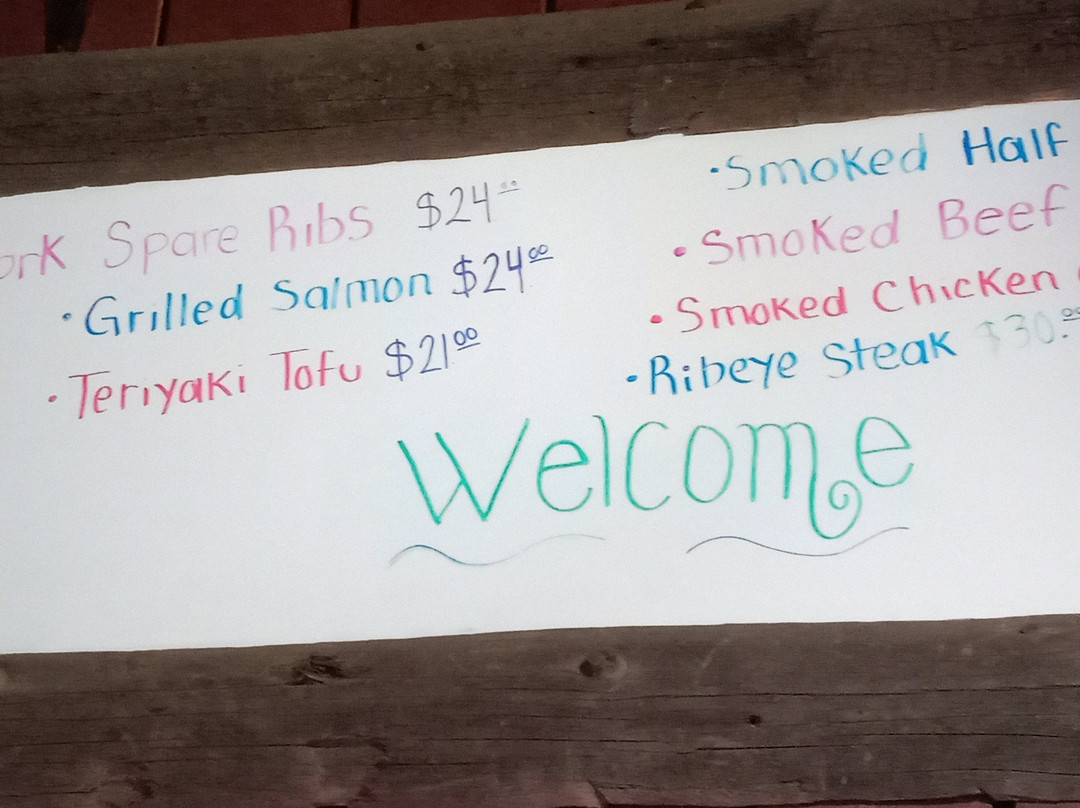 Spare Ribs $24.00
• Grilled Salmon $24.00
• Teriyaki Tofu $21.00
• Smoked Half
• Smoked Beef
• Smoked Chicken
• Ribeye Steak $30.00
Welcome